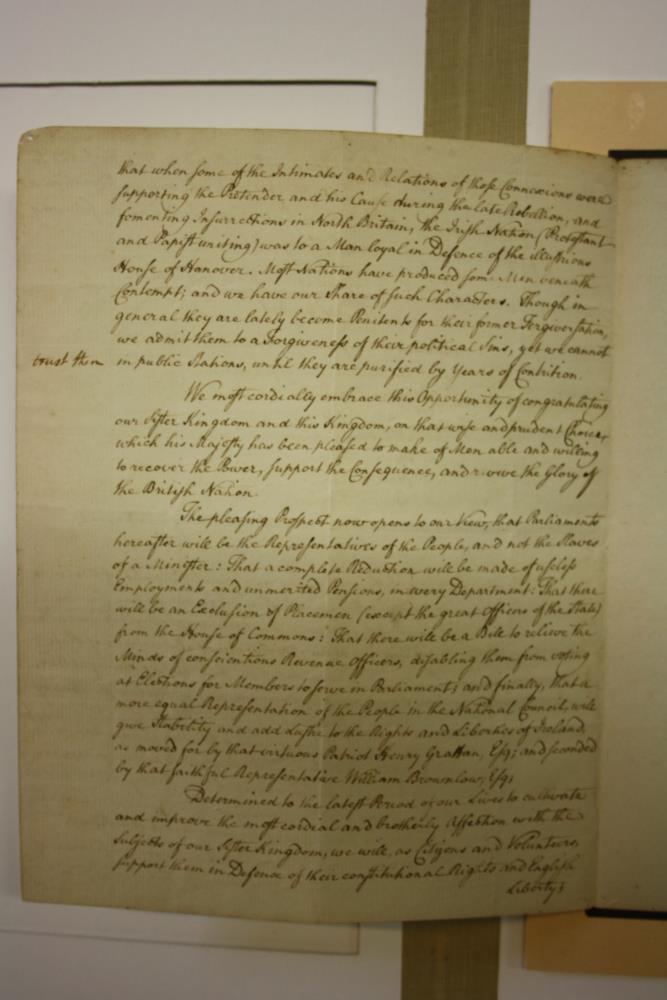 that when some of the Intimates and Relations of those Connexions were
supporting the Pretender and his Cause during the late Rebellion, and
fomenting Insurrections in North Britain, the Irish Nation (Protestant
and Papist uniting) was to a Man loyal in Defence of the illustrious
House of Hanover. Most Nations have produced some Men beneath
Contempt; and we have our Share of such Characters. Though in
general they are lately become Penitents for their former Tergiversation,
we admit them to a Forgiveness of their political Sins, yet we cannot
trust them in public Stations, until they are purified by Years of Contrition.
We most cordially embrace this Opportunity of congratulating
our Sister Kingdom and this Kingdom, on that wise and prudent Choice,
which his Majesty has been pleased to make of Men able and willing
to recover the Power, support the Consequence, and revive the Glory of
the British Nation.
The pleasing Prospect now opens to our View, that Parliaments
hereafter will be the Representatives of the People, and not the Slaves
of a Minister: That a complete Reduction will be made of useless
Employments and unmerited Pensions, in every Department: That there
will be an Exclusion of Placemen (except the great Officers of the State)
from the House of Commons: That there will be a Bill to relieve the
Minds of conscientious Revenue Officers, disabling them from voting
at Elections for Members to serve in Parliament; and finally, that a
more equal Representation of the People in the National Council, will
give Stability and add Lustre to the Rights and Liberties of Ireland,
as moved for by that virtuous Patriot Henry Grattan, Esq; and seconded
by that faithful Representative William Brownlow, Esq;
Determined to the latest Period of our Lives to cultivate
and improve the most cordial and brotherly Affection with the
Subjects of our Sister Kingdom, we will, as Citizens and Volunteers,
support them in Defence of their constitutional Rights and English
Liberty;